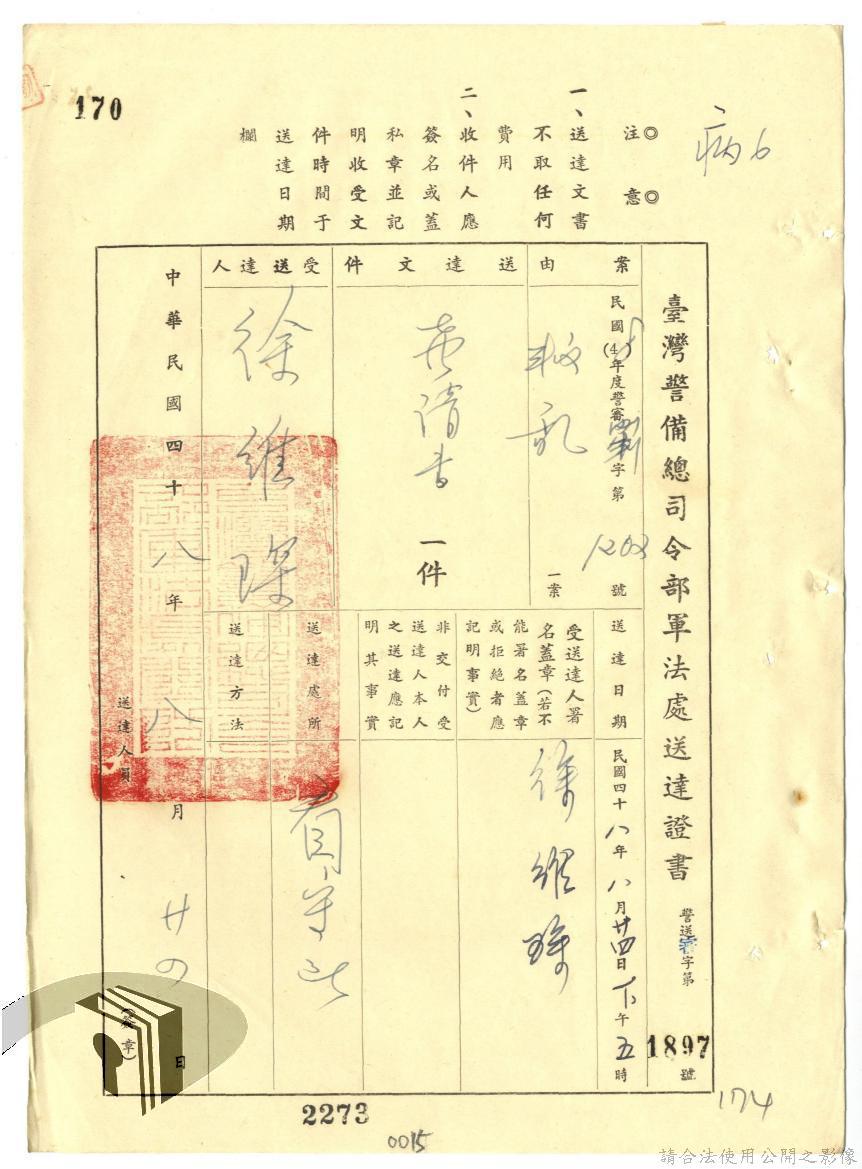 170
病6
注意
一、送達文書
不取任何
費用
二、收件人應
簽名或蓋
私章並記
明收受文
件時間于
送達日期
欄
臺灣警備總司令部軍法處送達證書
警送審字第
1897
號
案由
民國(48)年度警審字第
1203
號
叛亂
一案
送達文件
書
一件
受送達人
徐維琛
送達日期
民國四十八年八月廿四日下午五時
受送達人署
名蓋章(若不
能署名蓋章
或拒絕者應
記明事實)
徐維琛
非交付受
送達人本人
之送達應記
明其事實
送達處所
看守所
送達方法
中華民國四十八年八月廿四日
送達人員
(簽章)
2273
0015
174
請合法使用公開之影像